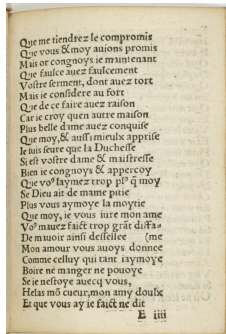 Que me tiendrez le compromis
Que vous & moy auions promis
Mais or congnoys ie maintenant
Que faulce auez faulcement
Vostre serment, dont auez tort
Mais ie considere au fort
Que de ce faire auez raison
Car ie croy quen autre maison
Plus belle dame auez conquise
Que moy, & aussi mieulx apprise
Ie suis seure que la Duchesse
Si est vostre dame & maistresse
Bien ie congnoys & appercoy
Que voꝰ laymez trop plꝰ q̃ moy
Se Dieu ait de mame pitie
Plus vous aymoye la moytie
Que moy, ie vous iure mon ame
Voꝰ mauez faict trop grãt diffa-
De mauoir ainsi dessellee (me
Mon amour vous auoys donnee
Comme celluy qui tant iaymoye
Boire ne manger ne pouoye
Se ie nestoye auecq vous,
Helas mõ cueur, mon amy doulx
Et que vous ay ie faict ne dit
E iiii